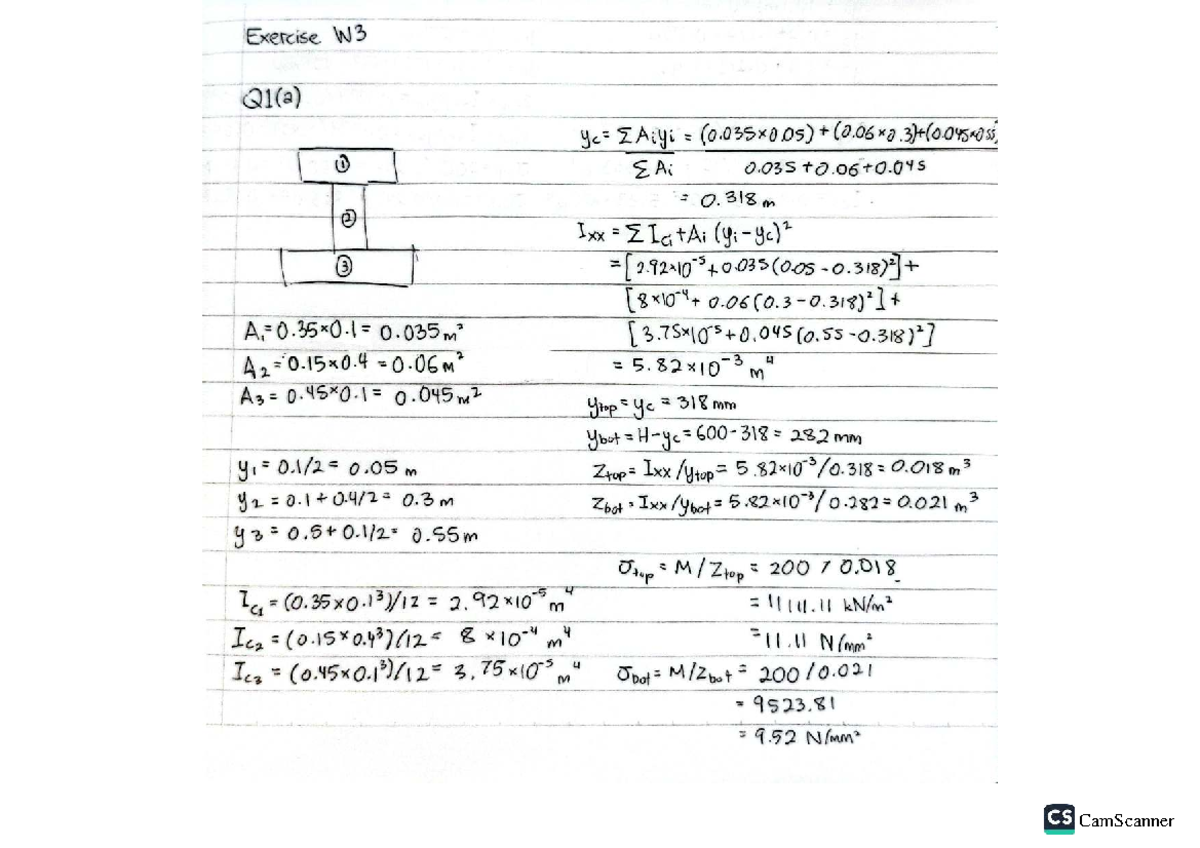 Exercise W3
Q1(a)
①
②
③
A₁=0.35×0.1= 0.035m²
A₂=0.15×0.4 =0.06m²
A₃= 0.45×0.1= 0.045m²
y₁= 0.1/2= 0.05 m
y₂ = 0.1+0.4/2= 0.3m
y₃= 0.5+0.1/2= 0.55m
I_c₁ = (0.35×0.1³)/12 = 2.92×10⁻⁵ m⁴
I_c₂ = (0.15×0.4³)/12= 8×10⁻⁴ m⁴
I_c₃ = (0.45×0.1³)/12= 3.75×10⁻⁵ m⁴
yc= ΣAiyi = (0.035×0.05)+(0.06×0.3)+(0.045×0.55)
ΣAi 0.035+0.06+0.045
= 0.318m
Ixx = ΣIci+Ai (yi-yc)²
=[2.92×10⁻⁵+0.035(0.05-0.318)²]+
[8×10⁻⁴+ 0.06(0.3-0.318)²]+
[3.75×10⁻⁵+0.045(0.55-0.318)²]
= 5.82×10⁻³ m⁴
ytop=yc=318mm
ybot=H-yc=600-318= 282mm
Ztop= Ixx/ytop= 5.82×10⁻³/0.318=0.018m³
Zbot=Ixx/ybot=5.82×10⁻³/0.282=0.021m³
σtop=M/Ztop= 200/0.018
=11111.11 kN/m²
=11.11 N/mm²
σbot=M/Zbot= 200/0.021
= 9523.81
= 9.52 N/mm²
CS CamScanner